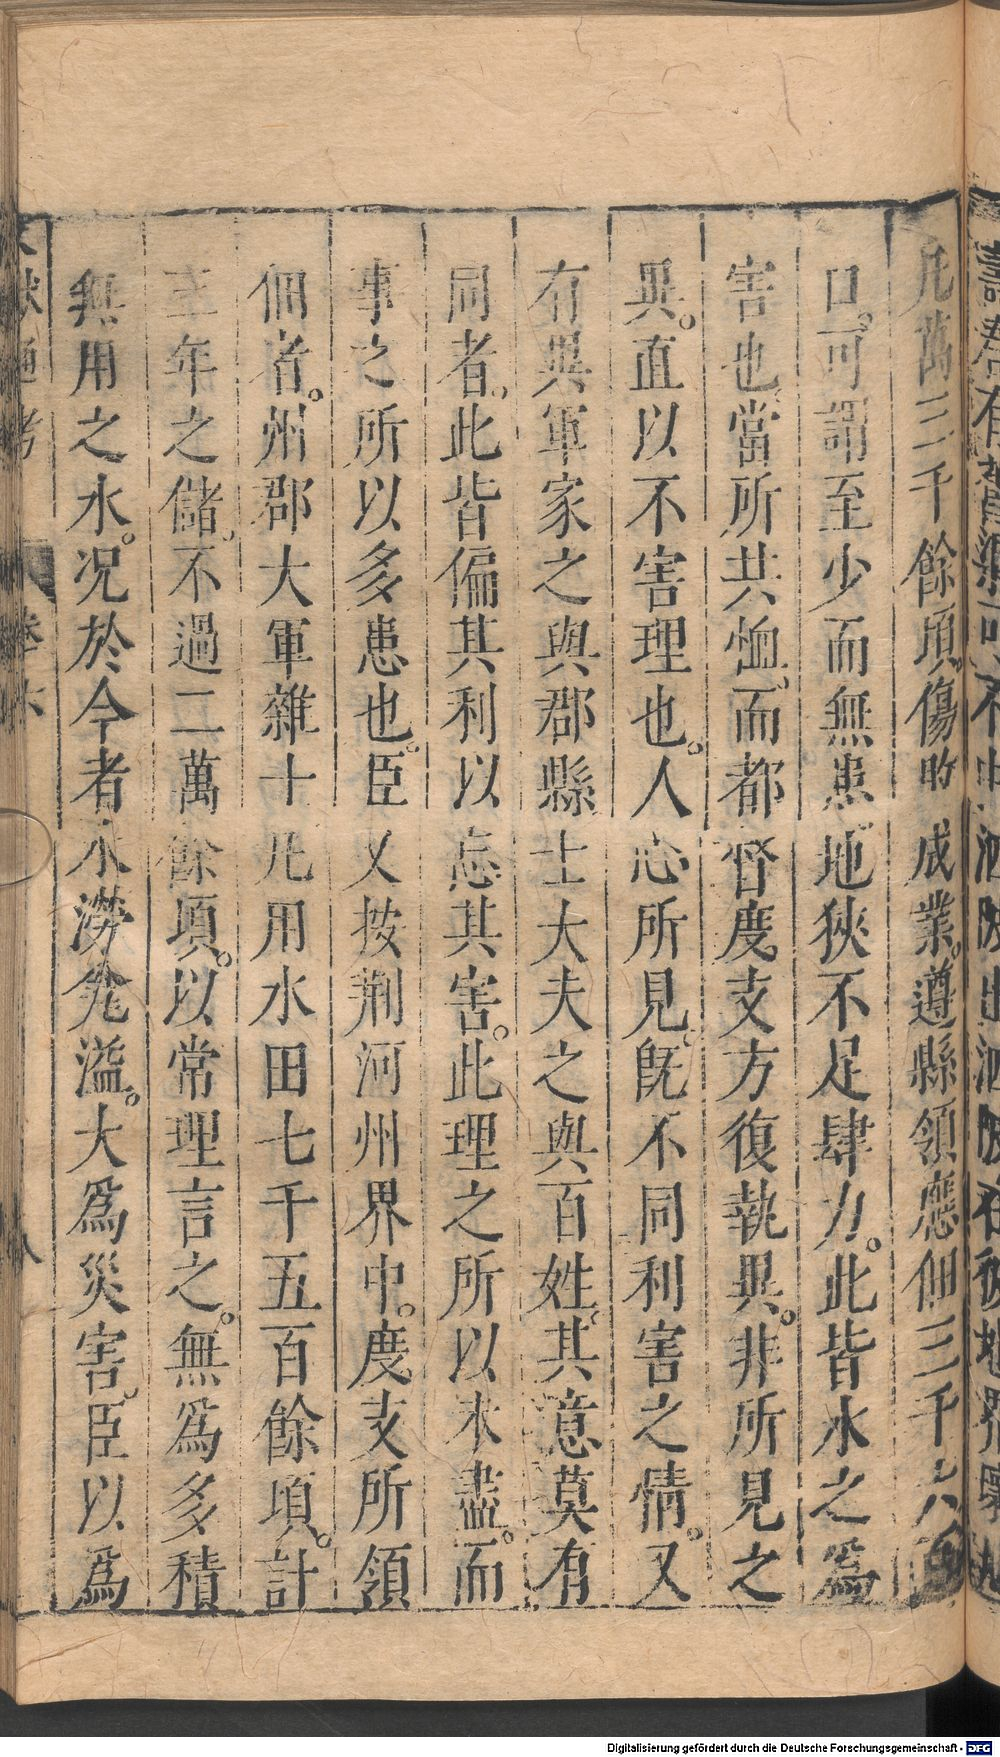 凡萬三千餘頃。傷敗成業。遵縣領應佃三千六百
口。可謂至少而無患地狹不足肆力。此皆水之爲
害也。當所共恤。而都督度支方復執異。非所見之
異。直以不害理也。人心所見。旣不同利害之情。又
有異軍家之與郡縣士大夫之與百姓。其意莫有
同者。此皆偏其利以忘其害。此理之所以未盡。而
事之所以多患也。臣又按荆河州界中。度支所領
佃者。州郡大軍雜士凡用水田七千五百餘頃。計
三年之儲。不過二萬餘頃。以常理言之。無爲多積
無用之水。况於今者水潦瓮溢。大爲災害。臣以爲
文獻通考 卷六 八
Digitalisierung gefördert durch die Deutsche Forschungsgemeinschaft - DFG